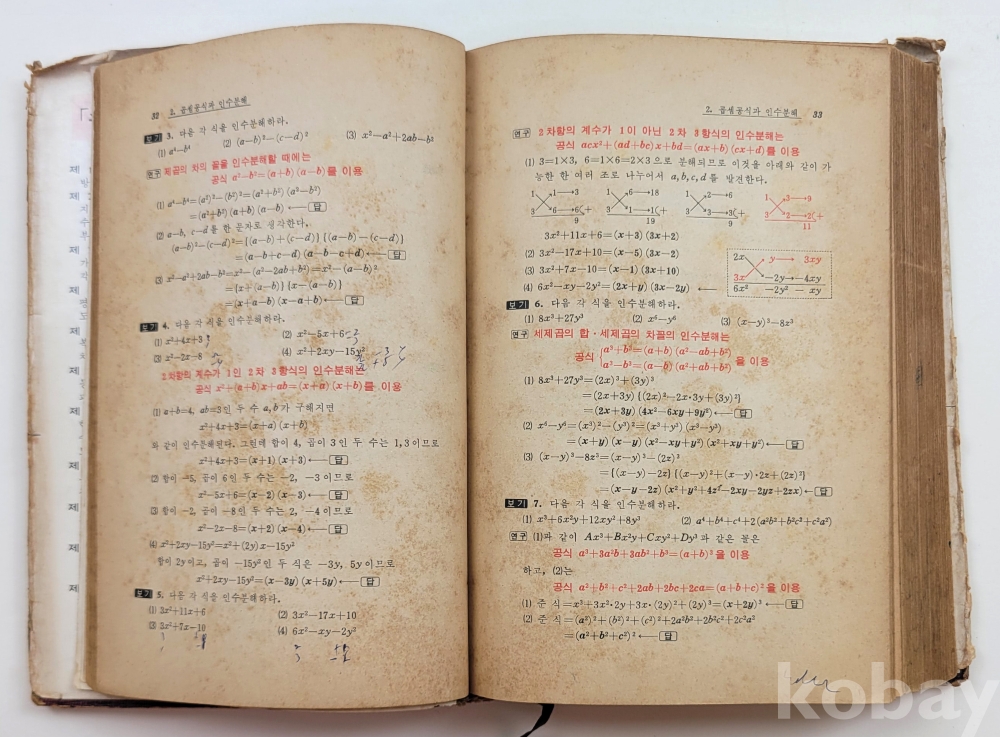 32 2. 곱셈공식과 인수분해
보기 3. 다음 각 식을 인수분해하라.
(1) a⁴−b⁴ (2) (a−b)²−(c−d)² (3) x²−a²+2ab−b²
연구 제곱의 차의 꼴을 인수분해할 때에는
공식 a²−b²=(a+b)(a−b)를 이용
(1) a⁴−b⁴=(a²)²−(b²)²=(a²+b²)(a²−b²)
=(a²+b²)(a+b)(a−b) ← 답
(2) a−b, c−d를 한 문자로 생각한다.
(a−b)²−(c−d)²={(a−b)+(c−d)}{(a−b)−(c−d)}
=(a−b+c−d)(a−b−c+d) ← 답
(3) x²−a²+2ab−b²=x²−(a²−2ab+b²)=x²−(a−b)²
={x+(a−b)}{x−(a−b)}
=(x+a−b)(x−a+b) ← 답
보기 4. 다음 각 식을 인수분해하라.
(1) x²+4x+3 (2) x²−5x+6
(3) x²−2x−8 (4) x²+2xy−15y²
2차항의 계수가 1인 2차 3항식의 인수분해는
공식 x²+(a+b)x+ab=(x+a)(x+b)를 이용
(1) a+b=4, ab=3인 두 수 a, b가 구해지면
x²+4x+3=(x+a)(x+b)
와 같이 인수분해된다. 그런데 합이 4, 곱이 3인 두 수는 1, 3이므로
x²+4x+3=(x+1)(x+3) ← 답
(2) 합이 −5, 곱이 6인 두 수는 −2, −3이므로
x²−5x+6=(x−2)(x−3) ← 답
(3) 합이 −2, 곱이 −8인 두 수는 2, −4이므로
x²−2x−8=(x+2)(x−4) ← 답
(4) x²+2xy−15y²=x²+(2y)x−15y²
합이 2y이고, 곱이 −15y²인 두 식은 −3y, 5y이므로
x²+2xy−15y²=(x−3y)(x+5y) ← 답
보기 5. 다음 각 식을 인수분해하라.
(1) 3x²+11x+6 (2) 3x²−17x+10
(3) 3x²+7x−10 (4) 6x²−xy−2y²
2. 곱셈공식과 인수분해 33
연구 2차항의 계수가 1이 아닌 2차 3항식의 인수분해는
공식 acx²+(ad+bc)x+bd=(ax+b)(cx+d)를 이용
(1) 3=1×3, 6=1×6=2×3으로 분해되므로 이것을 아래와 같이 가
능한 한 여러 조로 나누어서 a, b, c, d를 발견한다.
1 1→3 1 6→18 1 2→6 1 3→9
3 6→6(+ 3 1→1(+ 3 3→3(+ 3 2→2(+
9 19 9 11
3x²+11x+6=(x+3)(3x+2)
(2) 3x²−17x+10=(x−5)(3x−2)
(3) 3x²+7x−10=(x−1)(3x+10)
(4) 6x²−xy−2y²=(2x+y)(3x−2y) ←
2x y→ 3xy
3x −2y→−4xy
6x² −2y² − xy
보기 6. 다음 각 식을 인수분해하라.
(1) 8x³+27y³ (2) x⁶−y⁶ (3) (x−y)³−8z³
연구 세제곱의 합·세제곱의 차꼴의 인수분해는
공식 a³+b³=(a+b)(a²−ab+b²)
a³−b³=(a−b)(a²+ab+b²) 을 이용
(1) 8x³+27y³=(2x)³+(3y)³
=(2x+3y){(2x)²−2x·3y+(3y)²}
=(2x+3y)(4x²−6xy+9y²) ← 답
(2) x⁶−y⁶=(x³)²−(y³)²=(x³+y³)(x³−y³)
=(x+y)(x−y)(x²−xy+y²)(x²+xy+y²) ← 답
(3) (x−y)³−8z³=(x−y)³−(2z)³
={(x−y)−2z}{(x−y)²+(x−y)·2z+(2z)²}
=(x−y−2z)(x²+y²+4z²−2xy−2yz+2zx) ← 답
보기 7. 다음 각 식을 인수분해하라.
(1) x³+6x²y+12xy²+8y³ (2) a⁴+b⁴+c⁴+2(a²b²+b²c²+c²a²)
연구 (1)과 같이 Ax³+Bx²y+Cxy²+Dy³과 같은 꼴은
공식 a³+3a²b+3ab²+b³=(a+b)³을 이용
하고, (2)는
공식 a²+b²+c²+2ab+2bc+2ca=(a+b+c)²을 이용
(1) 준 식=x³+3x²·2y+3x·(2y)²+(2y)³=(x+2y)³ ← 답
(2) 준 식=(a²)²+(b²)²+(c²)²+2a²b²+2b²c²+2c²a²
=(a²+b²+c²)² ← 답
kobay